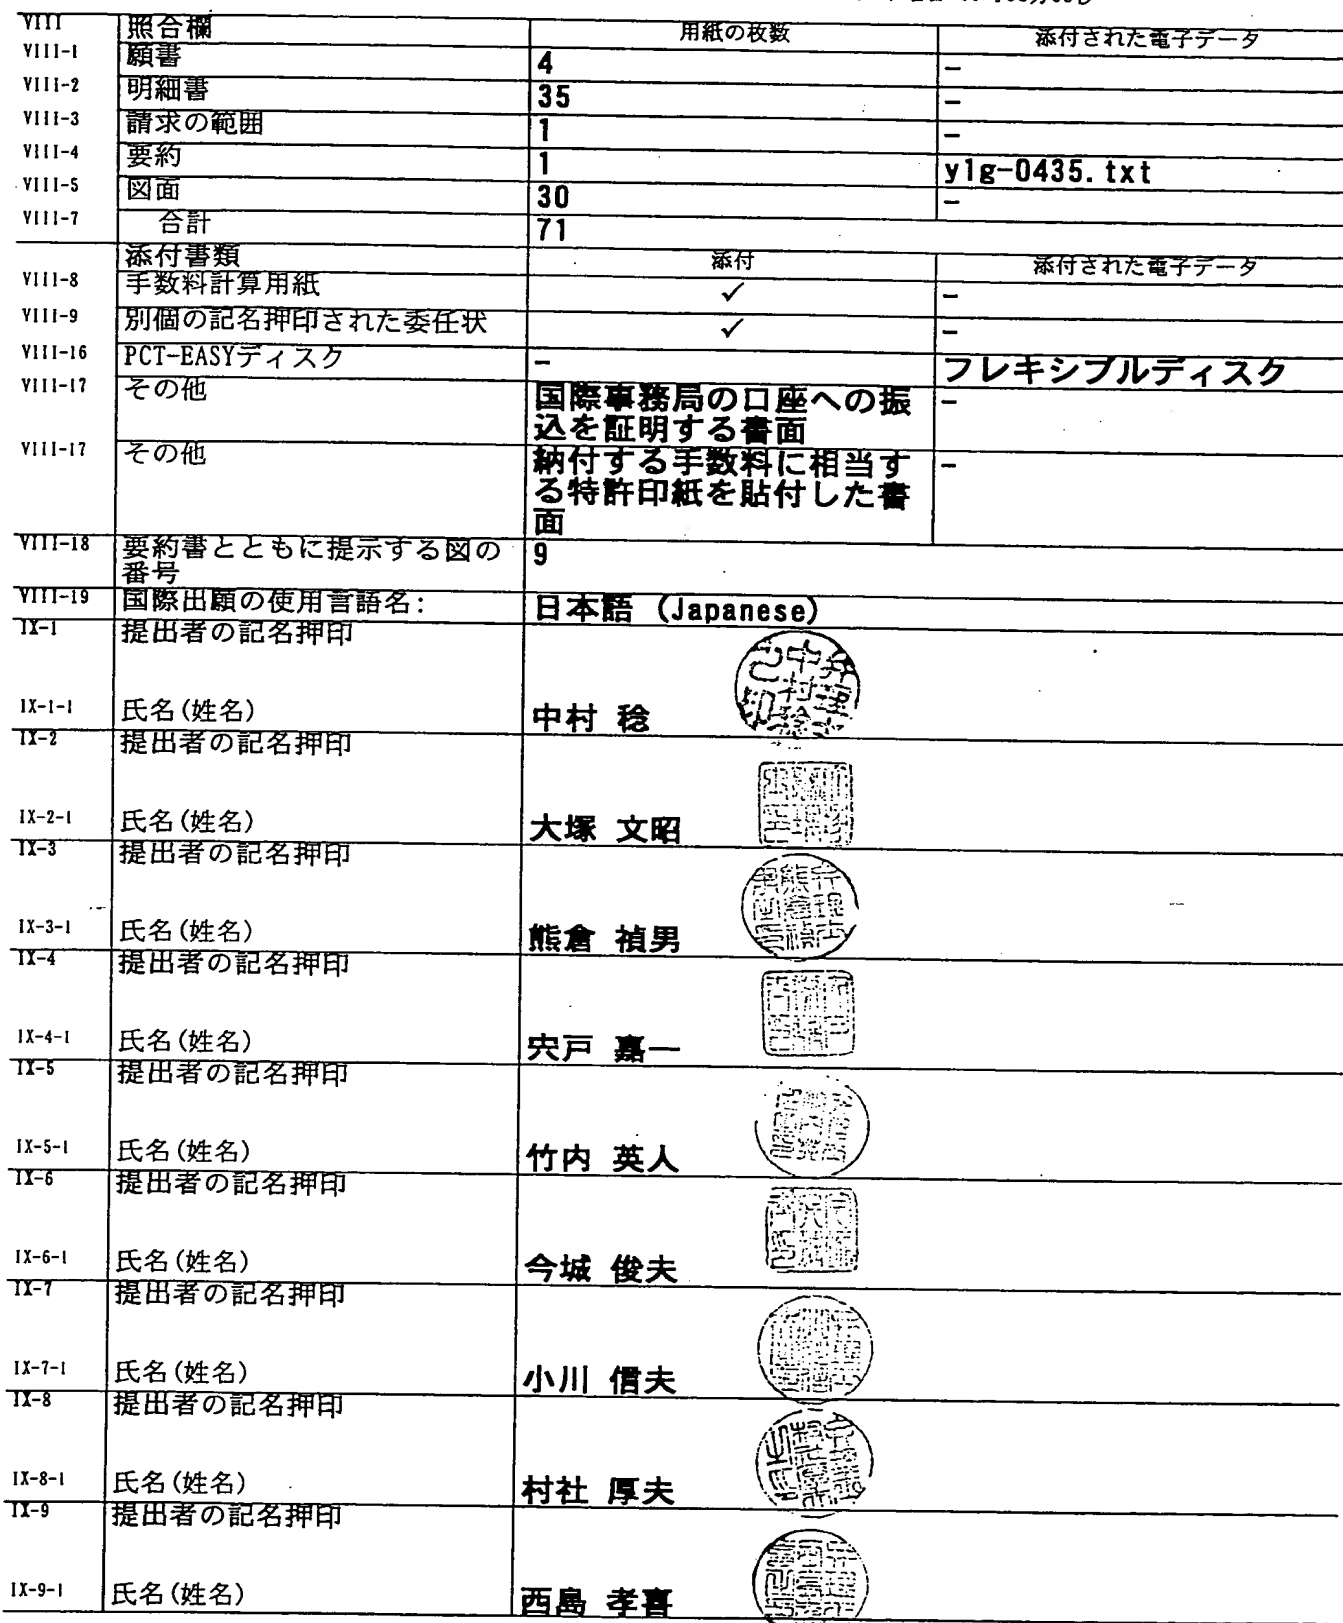 VIII 照合欄 用紙の枚数 添付された電子データ
VIII-1 願書 4 -
VIII-2 明細書 35 -
VIII-3 請求の範囲 1 -
VIII-4 要約 1 y1g-0435.txt
VIII-5 図面 30 -
VIII-7 合計 71
添付書類 添付 添付された電子データ
VIII-8 手数料計算用紙 ✓ -
VIII-9 別個の記名押印された委任状 ✓ -
VIII-16 PCT-EASYディスク - フレキシブルディスク
VIII-17 その他 国際事務局の口座への振 -
込を証明する書面
VIII-17 その他 納付する手数料に相当す -
る特許印紙を貼付した書
面
VIII-18 要約書とともに提示する図の 9
番号
VIII-19 国際出願の使用言語名: 日本語 (Japanese)
IX-1 提出者の記名押印
IX-1-1 氏名(姓名) 中村 稔
IX-2 提出者の記名押印
IX-2-1 氏名(姓名) 大塚 文昭
IX-3 提出者の記名押印
IX-3-1 氏名(姓名) 熊倉 禎男
IX-4 提出者の記名押印
IX-4-1 氏名(姓名) 宍戸 嘉一
IX-5 提出者の記名押印
IX-5-1 氏名(姓名) 竹内 英人
IX-6 提出者の記名押印
IX-6-1 氏名(姓名) 今城 俊夫
IX-7 提出者の記名押印
IX-7-1 氏名(姓名) 小川 信夫
IX-8 提出者の記名押印
IX-8-1 氏名(姓名) 村社 厚夫
IX-9 提出者の記名押印
IX-9-1 氏名(姓名) 西島 孝喜